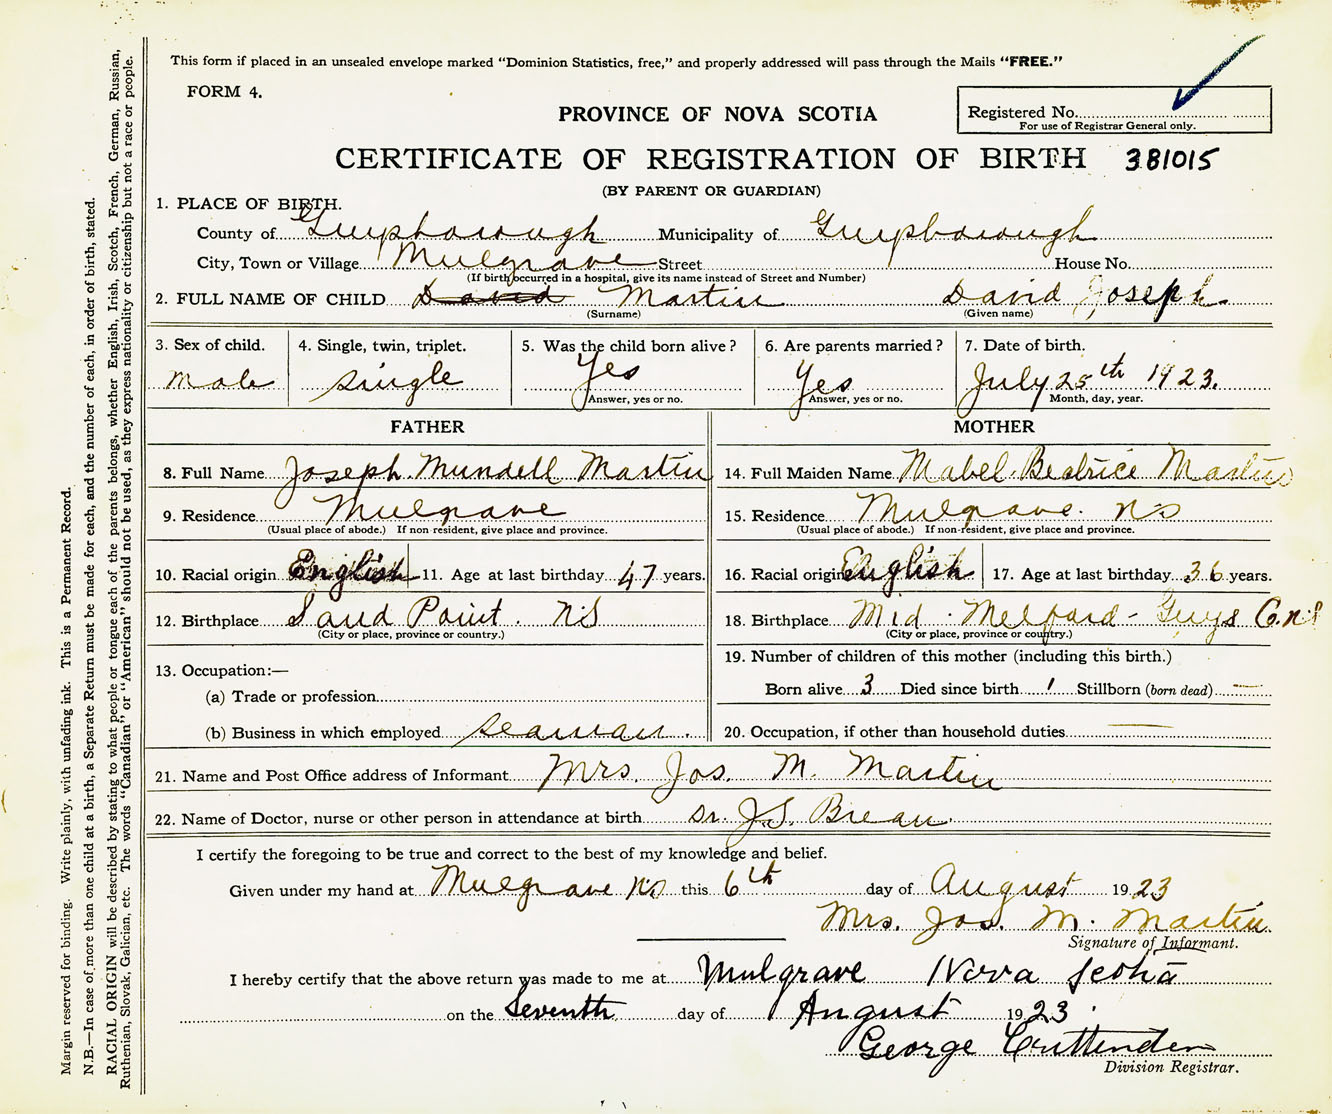 This form if placed in an unsealed envelope marked "Dominion Statistics, free," and properly addressed will pass through the Mails "FREE."
FORM 4.
PROVINCE OF NOVA SCOTIA
Registered No.
For use of Registrar General only.
CERTIFICATE OF REGISTRATION OF BIRTH 381015
(BY PARENT OR GUARDIAN)
1. PLACE OF BIRTH.
County of Guysborough Municipality of Guysborough
City, Town or Village Mulgrave Street House No.
(If birth occurred in a hospital, give its name instead of Street and Number)
2. FULL NAME OF CHILD David Martin David Joseph
(Surname) (Given name)
3. Sex of child. 4. Single, twin, triplet. 5. Was the child born alive? 6. Are parents married? 7. Date of birth.
male single Yes Yes July 25th 1923.
Answer, yes or no. Answer, yes or no. Month, day, year.
FATHER MOTHER
8. Full Name Joseph Mundell Martin 14. Full Maiden Name Mabel Beatrice Martin
9. Residence Mulgrave 15. Residence Mulgrave. NS
(Usual place of abode.) If non-resident, give place and province. (Usual place of abode.) If non-resident, give place and province.
10. Racial origin English 11. Age at last birthday 47 years. 16. Racial origin English 17. Age at last birthday 36 years.
12. Birthplace Sand Point. NS 18. Birthplace Mid - Melford - Guys Co. NS
(City or place, province or country.) (City or place, province or country.)
13. Occupation:— 19. Number of children of this mother (including this birth.)
(a) Trade or profession Born alive 3 Died since birth 1 Stillborn (born dead) —
(b) Business in which employed seaman. 20. Occupation, if other than household duties —
21. Name and Post Office address of Informant Mrs. Jos. M. Martin
22. Name of Doctor, nurse or other person in attendance at birth Dr. J.S. Brean.
I certify the foregoing to be true and correct to the best of my knowledge and belief.
Given under my hand at Mulgrave NS this 6th day of August 1923
Mrs. Jos. M. Martin.
Signature of Informant.
I hereby certify that the above return was made to me at Mulgrave Nova Scotia
on the Seventh day of August 1923.
George Crittenden
Division Registrar.
Margin reserved for binding. Write plainly, with unfading ink. This is a Permanent Record.
N.B.—In case of more than one child at a birth, a Separate Return must be made for each, and the number of each, in order of birth, stated.
RACIAL ORIGIN will be described by stating to what people or tongue each of the parents belongs, whether English, Irish, Scotch, French, German, Russian,
Ruthenian, Slovak, Galician, etc. The words "Canadian" or "American" should not be used, as they express nationality or citizenship but not a race or people.